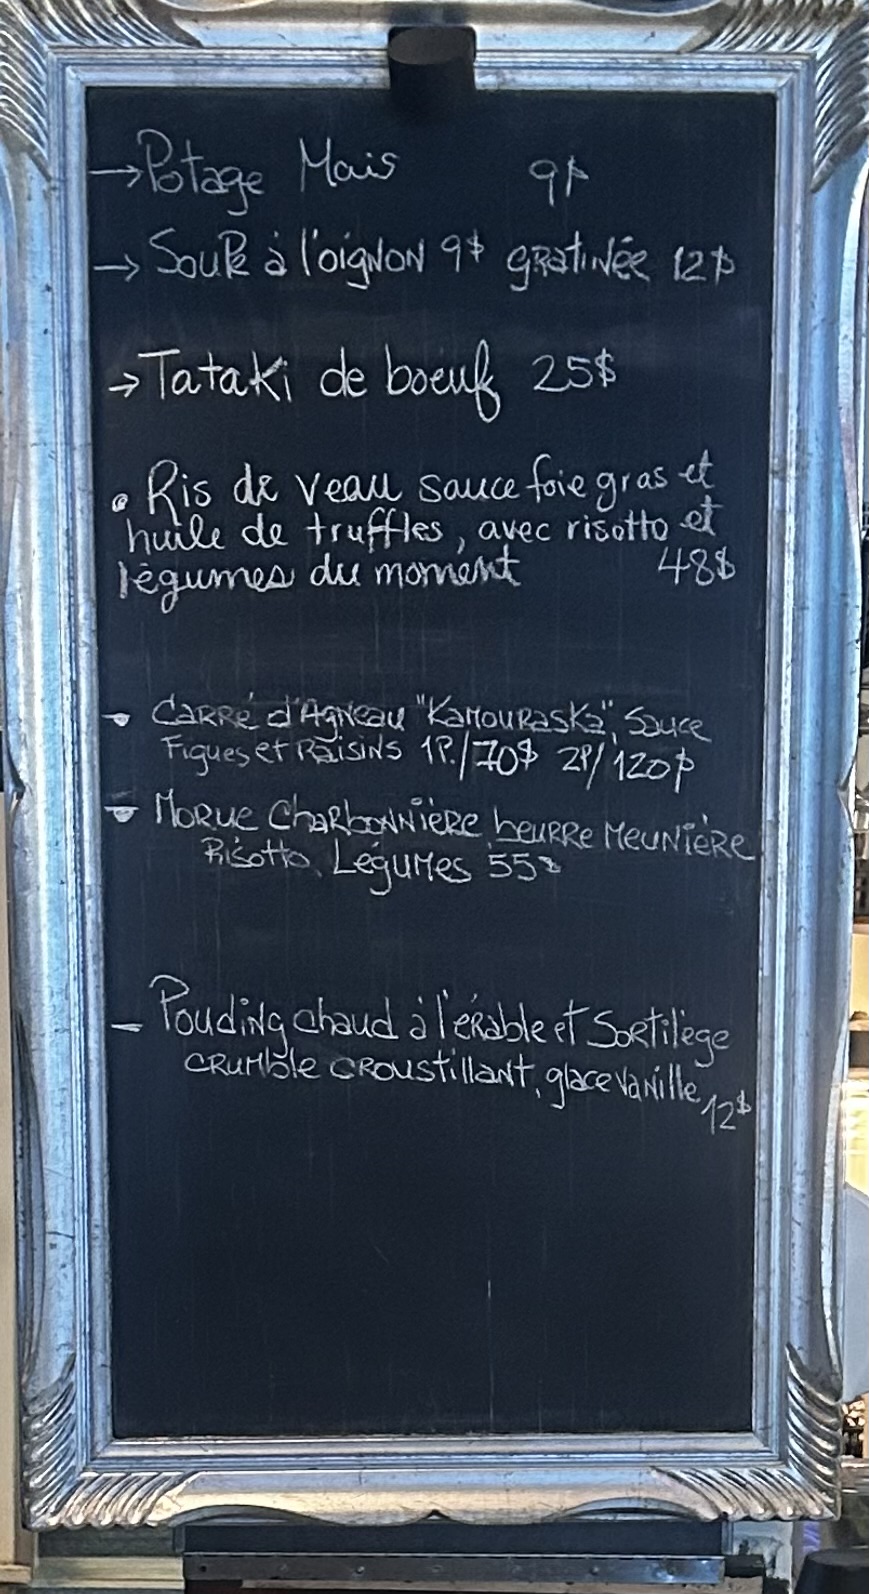 → Potage Mais 9$
→ Soupe à l'oignon 9$ gratinée 12$
→ Tataki de boeuf 25$
• Ris de veau sauce foie gras et
huile de truffles, avec risotto et
légumes du moment 48$
- Carré d'Agneau "Kamouraska", Sauce
Figues et Raisins 1P./70$ 2P/120$
- Morue Charbonnière, beurre Meunière
Risotto, Légumes 55$
- Pouding chaud à l'érable et Sortilège
crumble croustillant, glace vanille, 12$